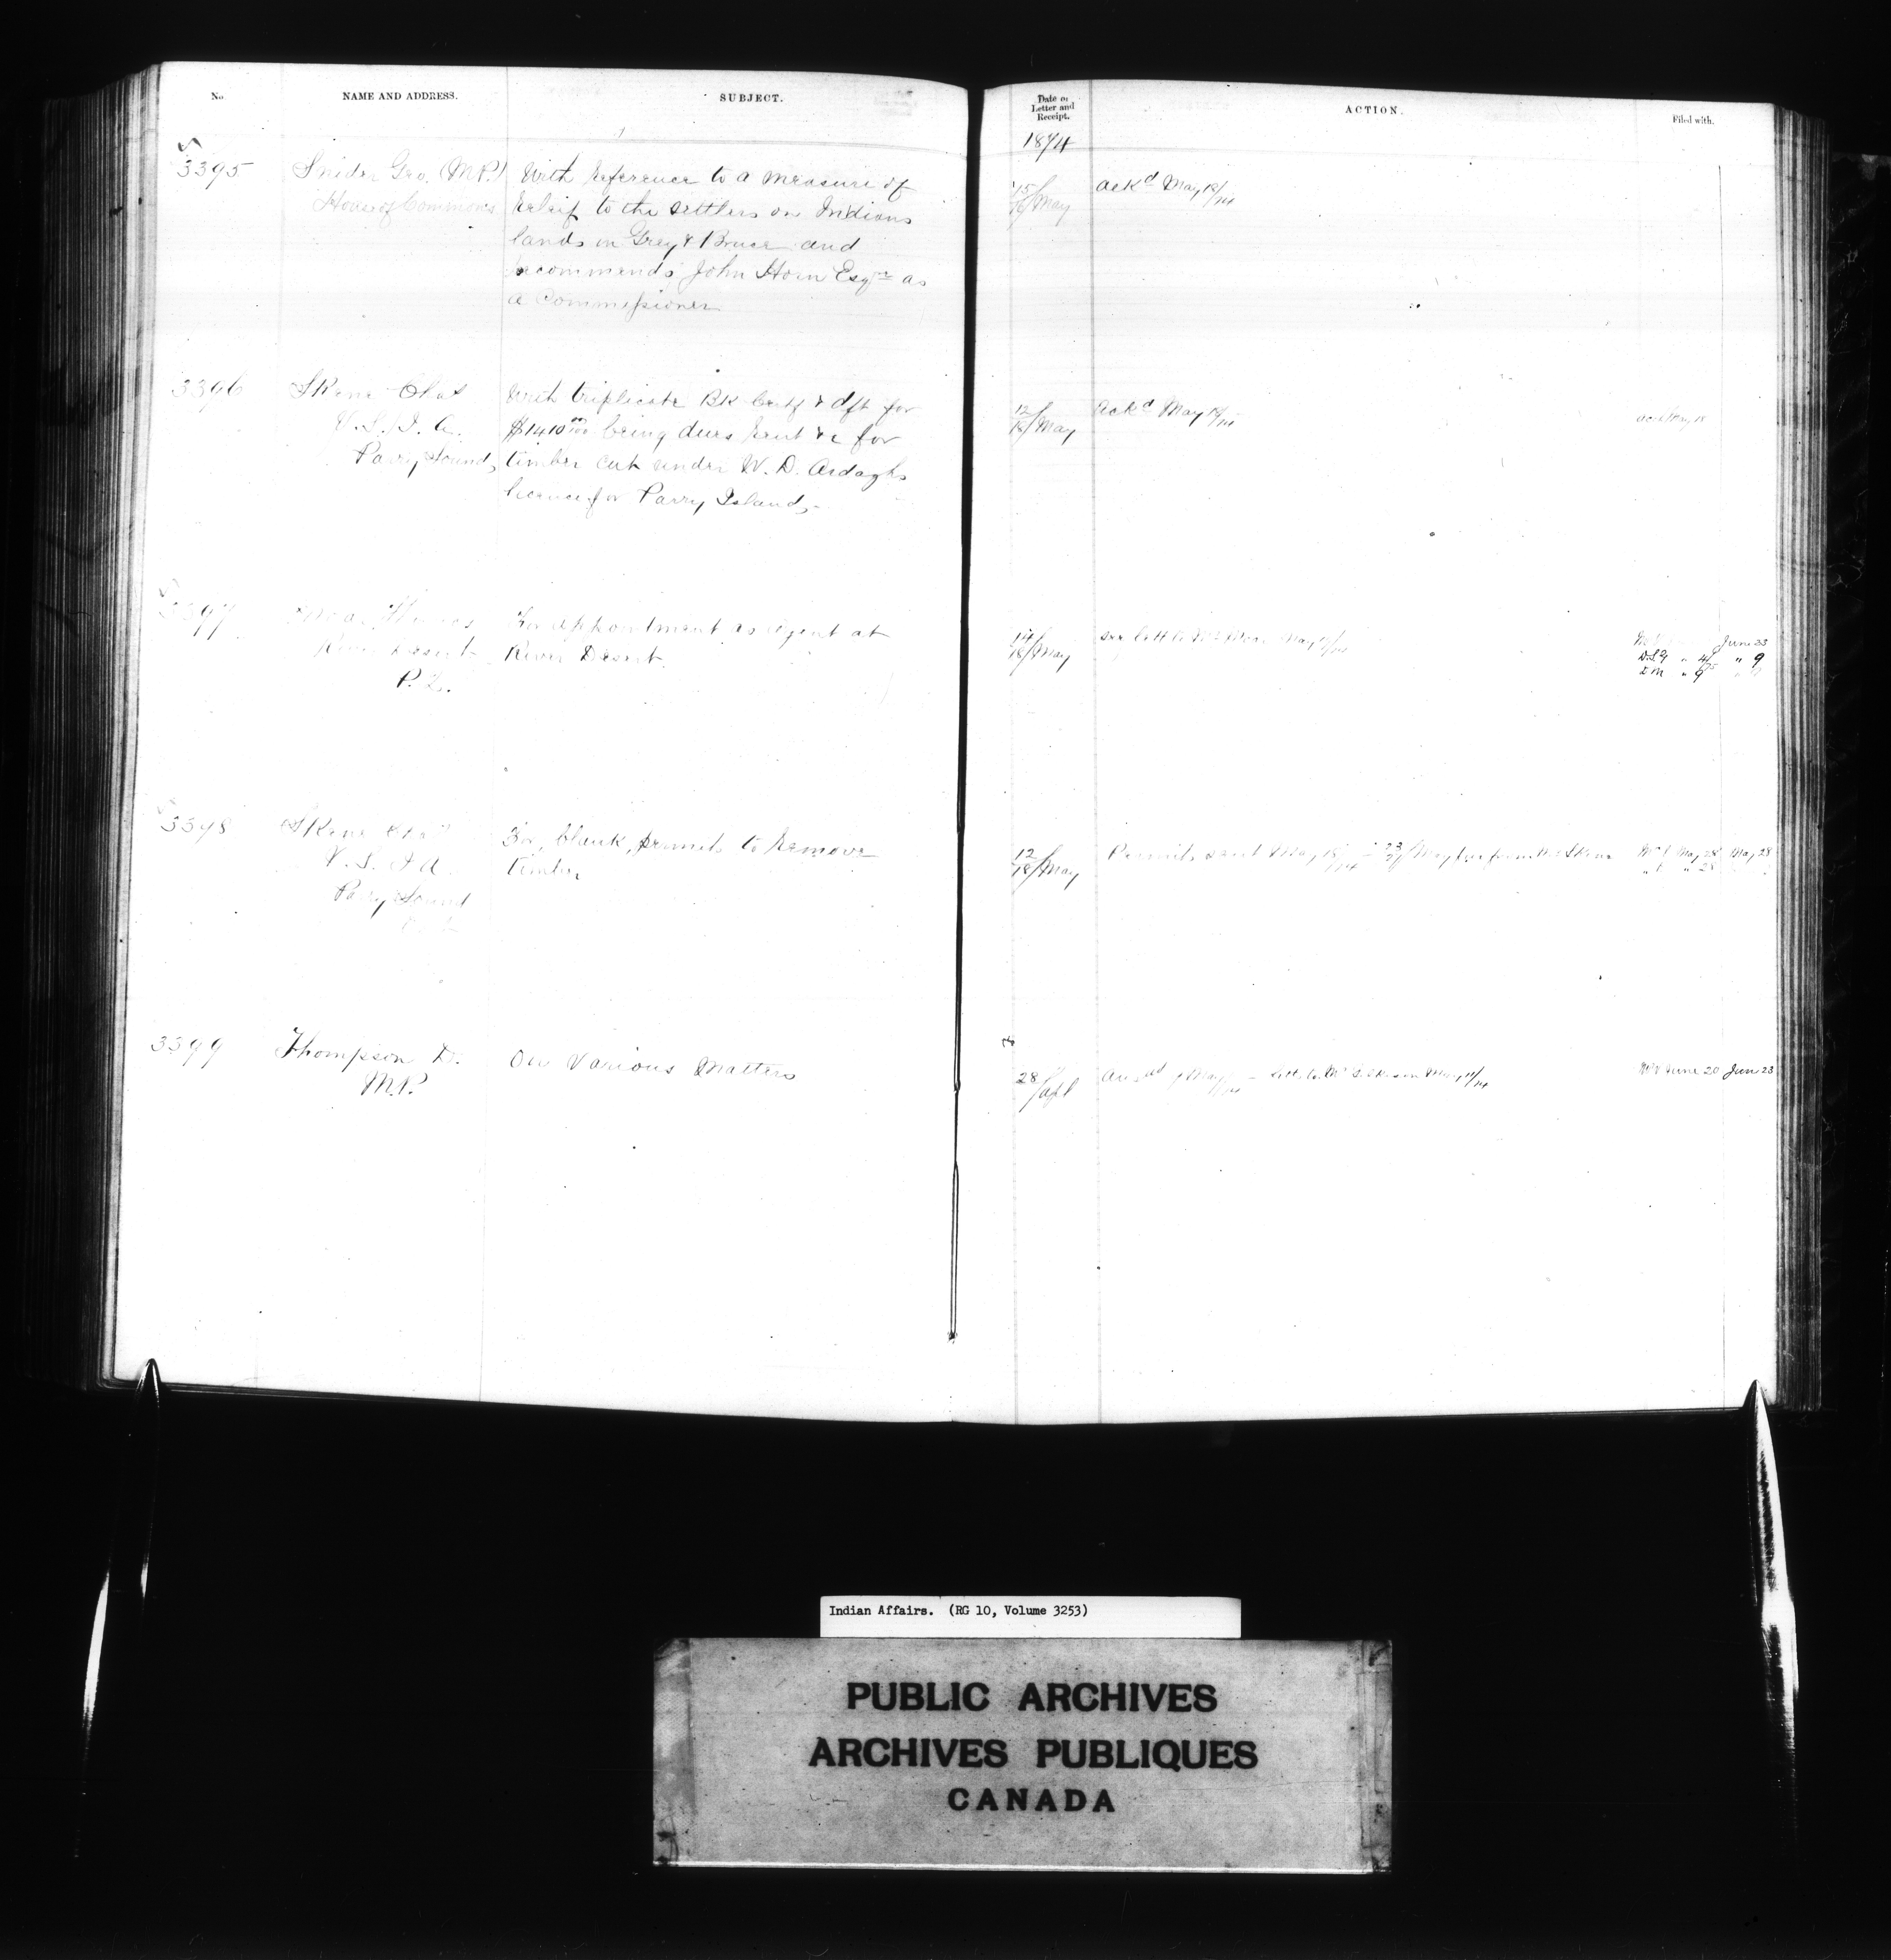 No.
NAME AND ADDRESS.
SUBJECT.
Date of
Letter and
Receipt.
ACTION.
Filed with.
1874
3395
Snider Geo. (M.P.)
House of Commons
With reference to a measure of
releif to the settlers on Indians
lands in Grey & Bruce and
recommends John Horn Esqre as
a Commissioner
15/18 May
ackd May 18/74
3396
Skene Chas
V. S. I. A.
Parry Sound,
With triplicate Bk Certf & dft for
$1410 00/100 being dues rent &c for
timber cut under W. D. Ardaghs
licence for Parry Island,
12/18 May
ackd May 18/74
May 18
3397
River Desert
P. Q.
For appointment as Agent at
River Desert
14/18 May
see lett to Mr May
June 23
" 4 " 9
" 9 "
3398
Skene Chas
V. S. I. A.
Parry Sound
For blank permits to remove
timber
12/18 May
Permits sent May 18/74 - 23/27 May from Mr Skene
May 28 May 28
" 28
3399
Thompson D.
M.P.
On Various Matters
28/ Apl
May lett. to Mr May
June 20 Jun 23
Indian Affairs. (RG 10, Volume 3253)
PUBLIC ARCHIVES
ARCHIVES PUBLIQUES
CANADA